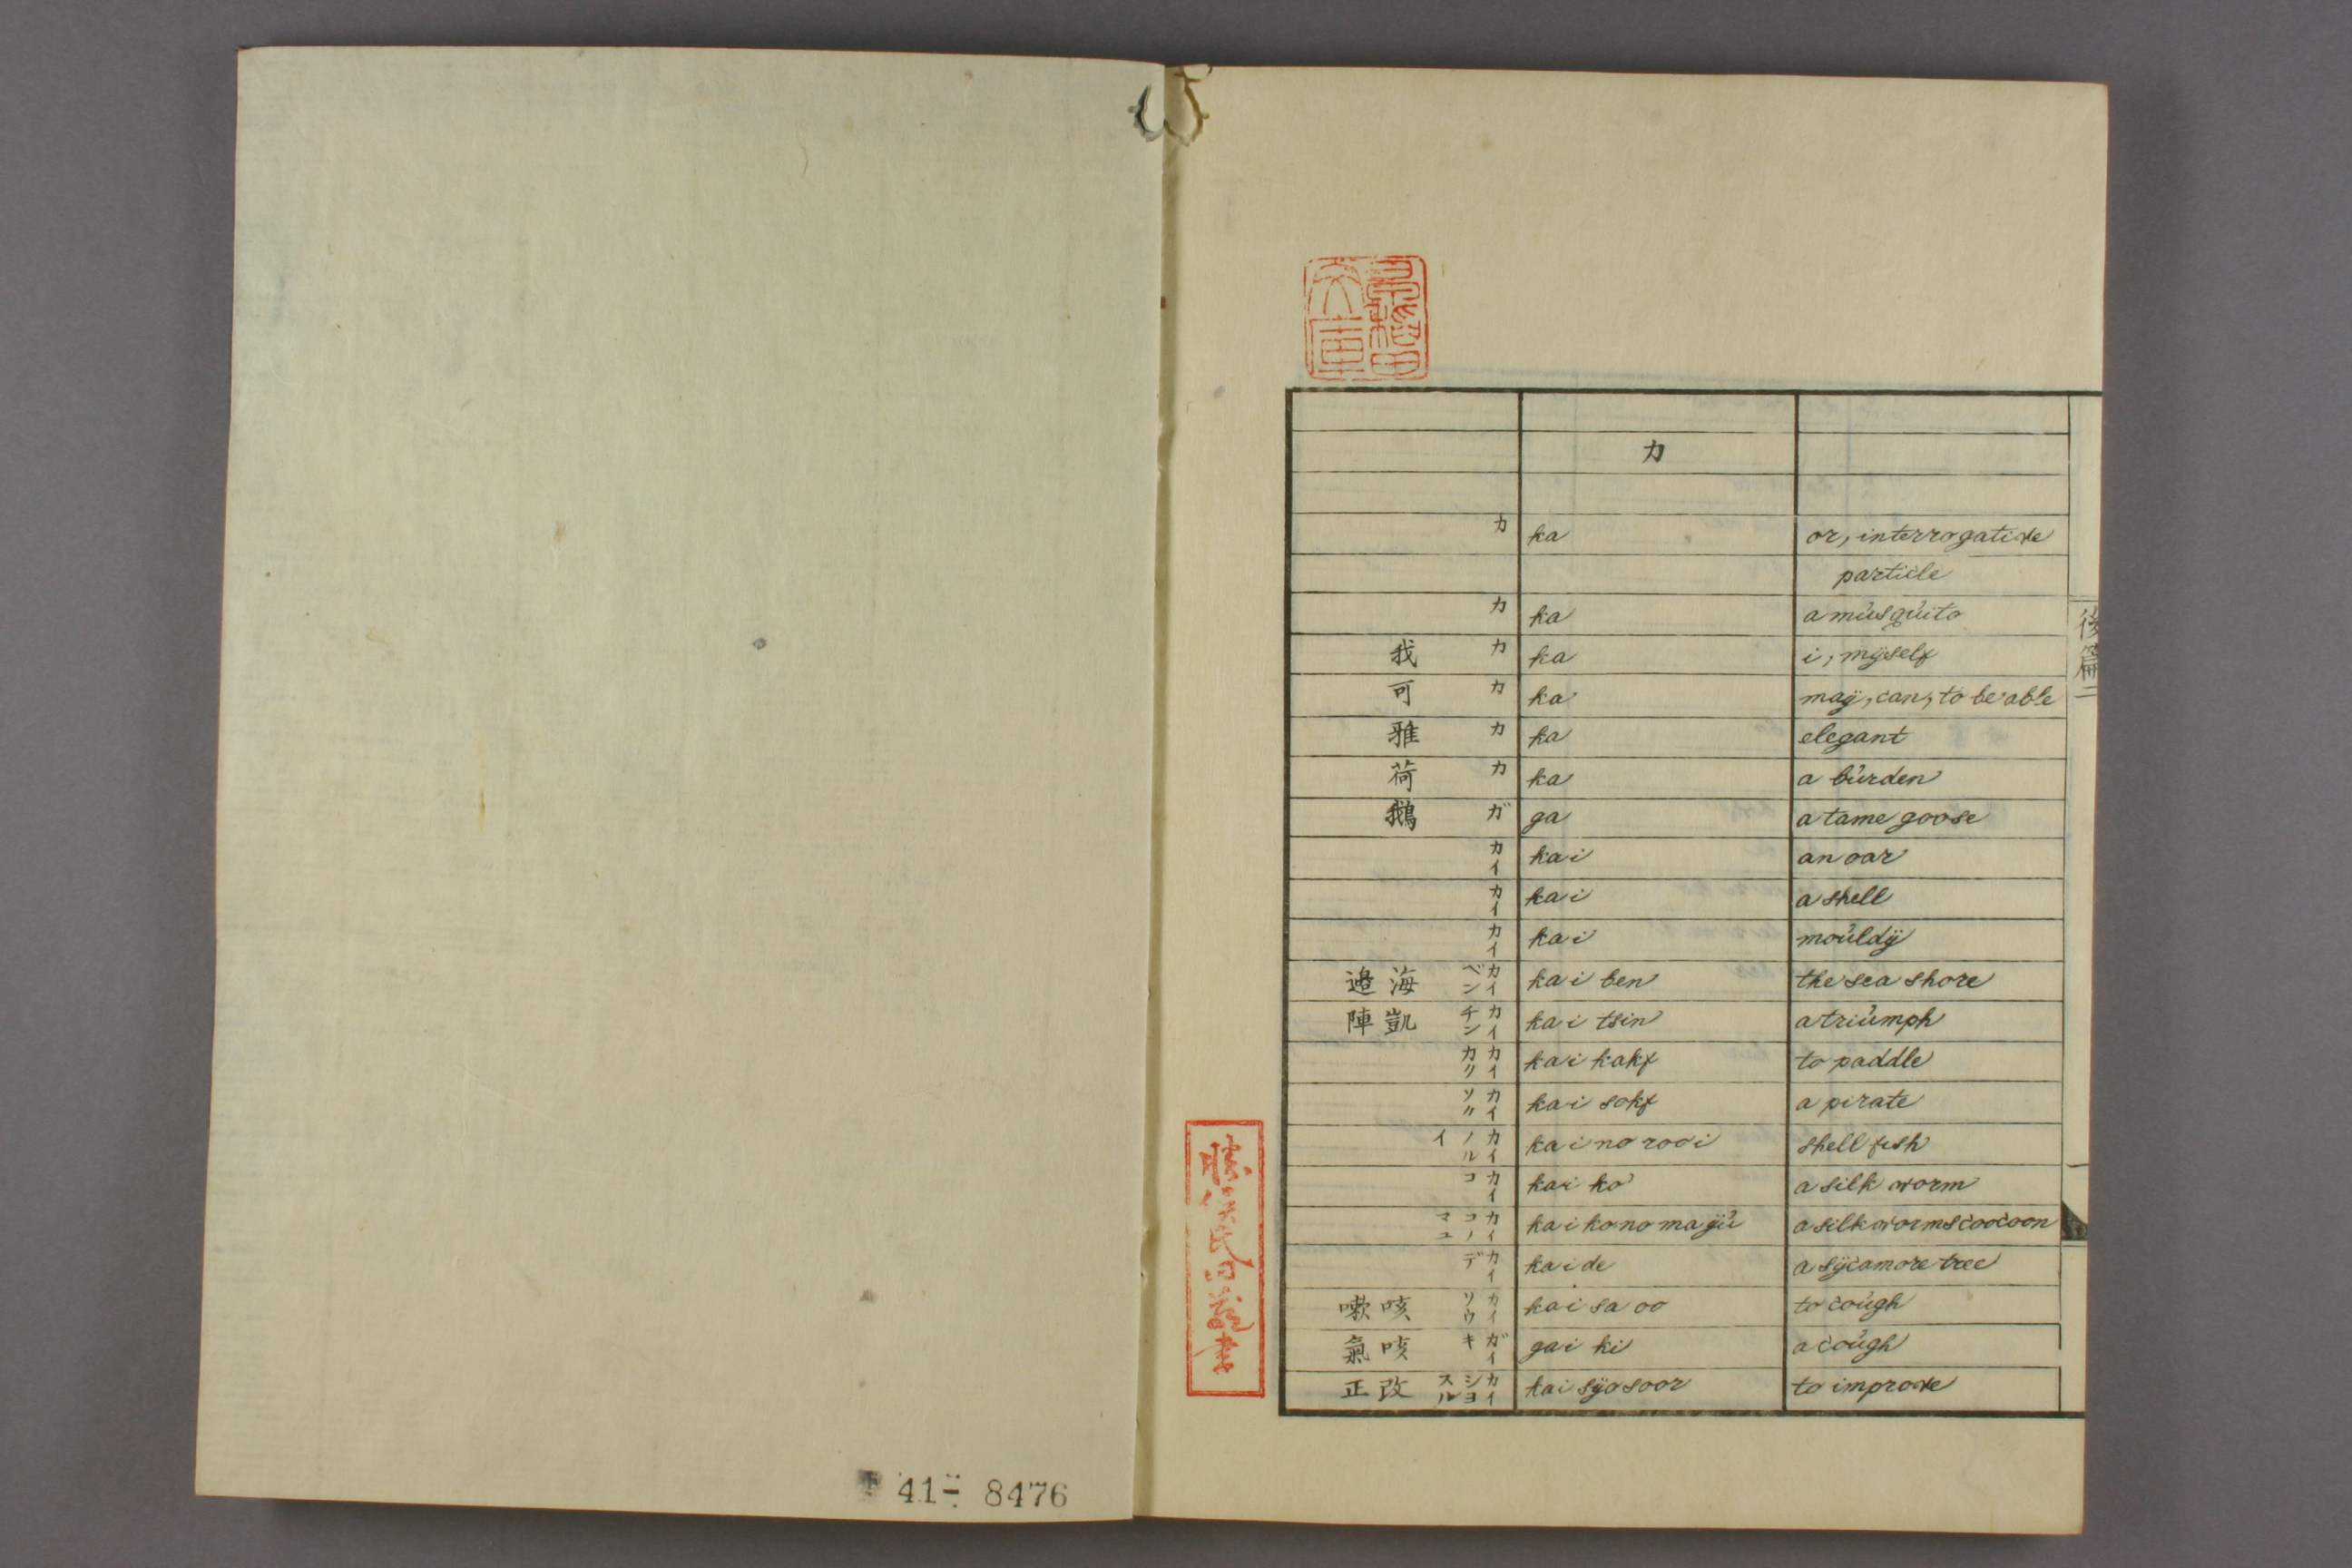 力
カ ka or, interrogative
particle
カ ka a musquito
我 カ ka i, myself
可 カ ka may, can, to be able
雅 カ ka elegant
荷 カ ka a burden
鵝 ガ ga a tame goose
カイ kai an oar
カイ kai a shell
カイ kai mouldy
海邉 カイベン kai ben the sea shore
凱陣 カイチン kai tsin a triumph
カイカク kai kakf to paddle
カイソク kai sokf a pirate
カイノルイ kai no rooi shell fish
カイコ kai ko a silk worm
カイコノマユ kai ko no mayu a silk worms coocoon
カイデ kai de a sycamore tree
咳嗽 カイソウ kai sa oo to cough
咳氣 ガイキ gai ki a cough
改正 カイシヨスル kai syo soor to improve
後篇二
41- 8476